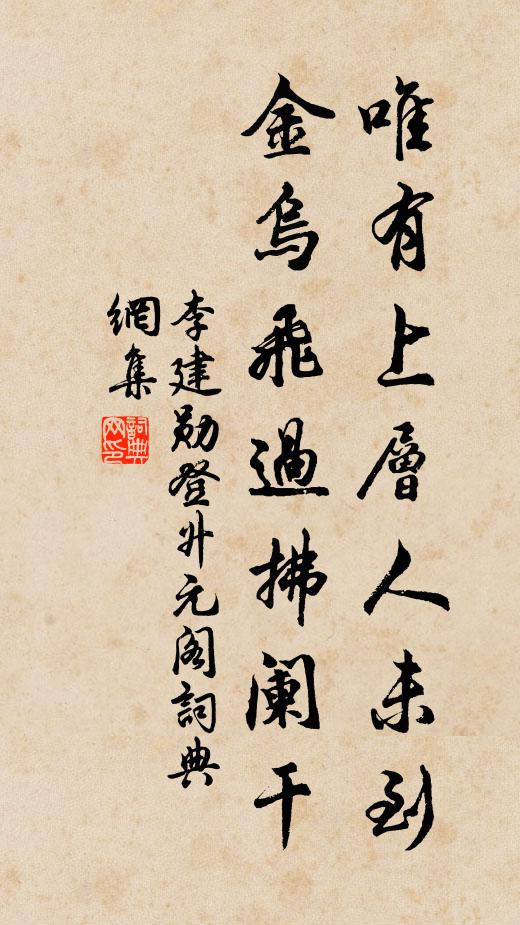 唯有上層人未到
金烏飛過拂阑干
李建勛登升元阁詞典
網集
詞典網印